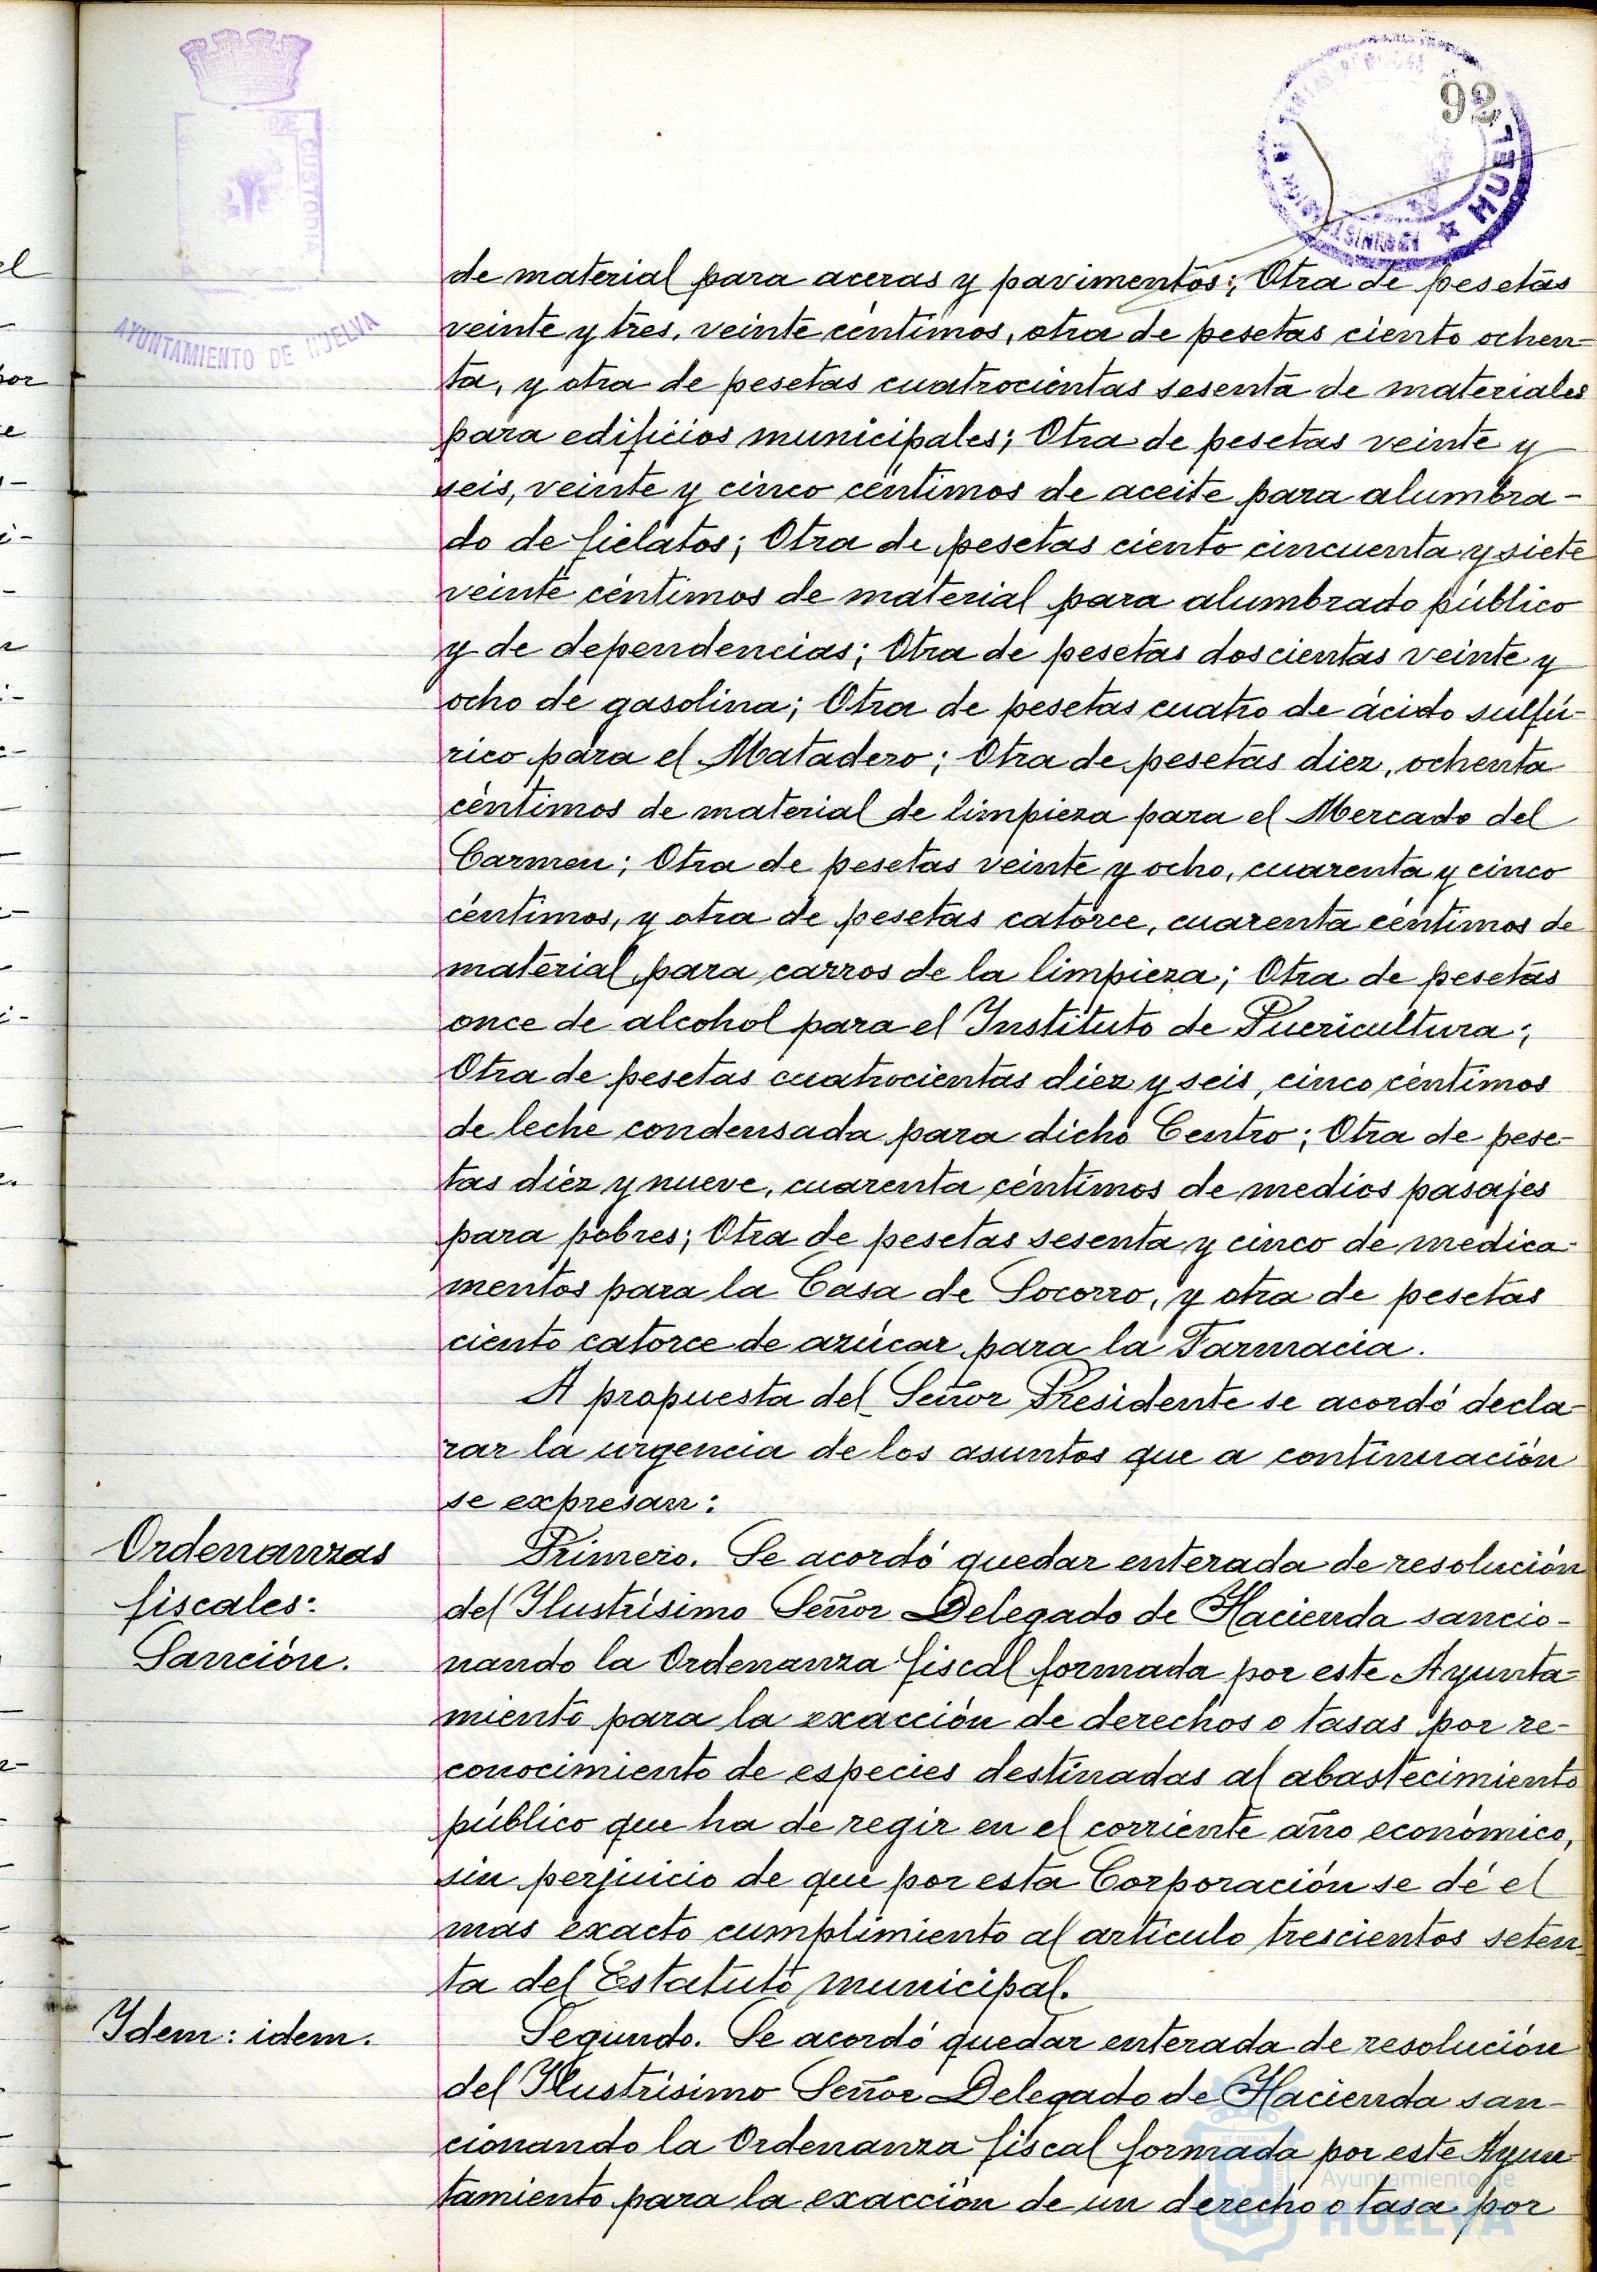 92
HUEL
CUSTODIA
AYUNTAMIENTO DE HUELVA
de material para aceras y pavimentos; Otra de pesetas
veinte y tres, veinte céntimos, otra de pesetas ciento ochen-
ta, y otra de pesetas cuatrocientas sesenta de materiales
para edificios municipales; Otra de pesetas veinte y
seis, veinte y cinco céntimos de aceite para alumbra-
do de fielatos; Otra de pesetas ciento cincuenta y siete
veinte céntimos de material para alumbrado público
y de dependencias; Otra de pesetas doscientas veinte y
ocho de gasolina; Otra de pesetas cuatro de ácido sulfú-
rico para el Matadero; Otra de pesetas diez, ochenta
céntimos de material de limpieza para el Mercado del
Carmen; Otra de pesetas veinte y ocho, cuarenta y cinco
céntimos, y otra de pesetas catorce, cuarenta céntimos de
material para carros de la limpieza; Otra de pesetas
once de alcohol para el Instituto de Puericultura;
Otra de pesetas cuatrocientas diez y seis, cinco céntimos
de leche condensada para dicho Centro; Otra de pese-
tas diéz y nueve, cuarenta céntimos de medios pasajes
para pobres; Otra de pesetas sesenta y cinco de medica-
mentos para la Casa de Socorro, y otra de pesetas
ciento catorce de azúcar para la Farmacia.
A propuesta del Señor Presidente se acordó decla-
rar la urgencia de los asuntos que a continuación
se expresan:
Ordenanzas
fiscales:
Sanción.
Primero. Se acordó quedar enterada de resolución
del Ilustrísimo Señor Delegado de Hacienda sancio-
nando la Ordenanza fiscal formada por este Ayunta-
miento para la exacción de derechos o tasas por re-
conocimiento de especies destinadas al abastecimiento
público que ha de regir en el corriente año económico,
sin perjuicio de que por esta Corporación se dé el
mas exacto cumplimiento al artículo trescientos seten-
ta del Estatuto municipal.
Idem: idem.
Segundo. Se acordó quedar enterada de resolución
del Ilustrísimo Señor Delegado de Hacienda san-
cionando la Ordenanza fiscal formada por este Ayun-
tamiento para la exacción de un derecho o tasa por
Ayuntamiento de
HUELVA